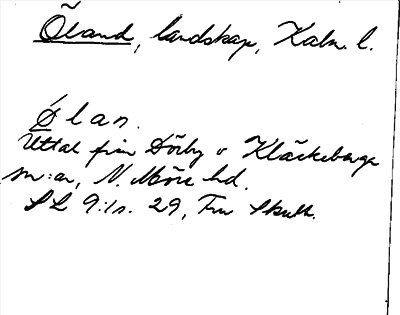 Öland, landskap, Kalm. l.
Ölan.
Uttal från Dörby o Kläckeberga
sn:ar, N. Möre hd.
SL 9:1 s. 29, Fru Skult.